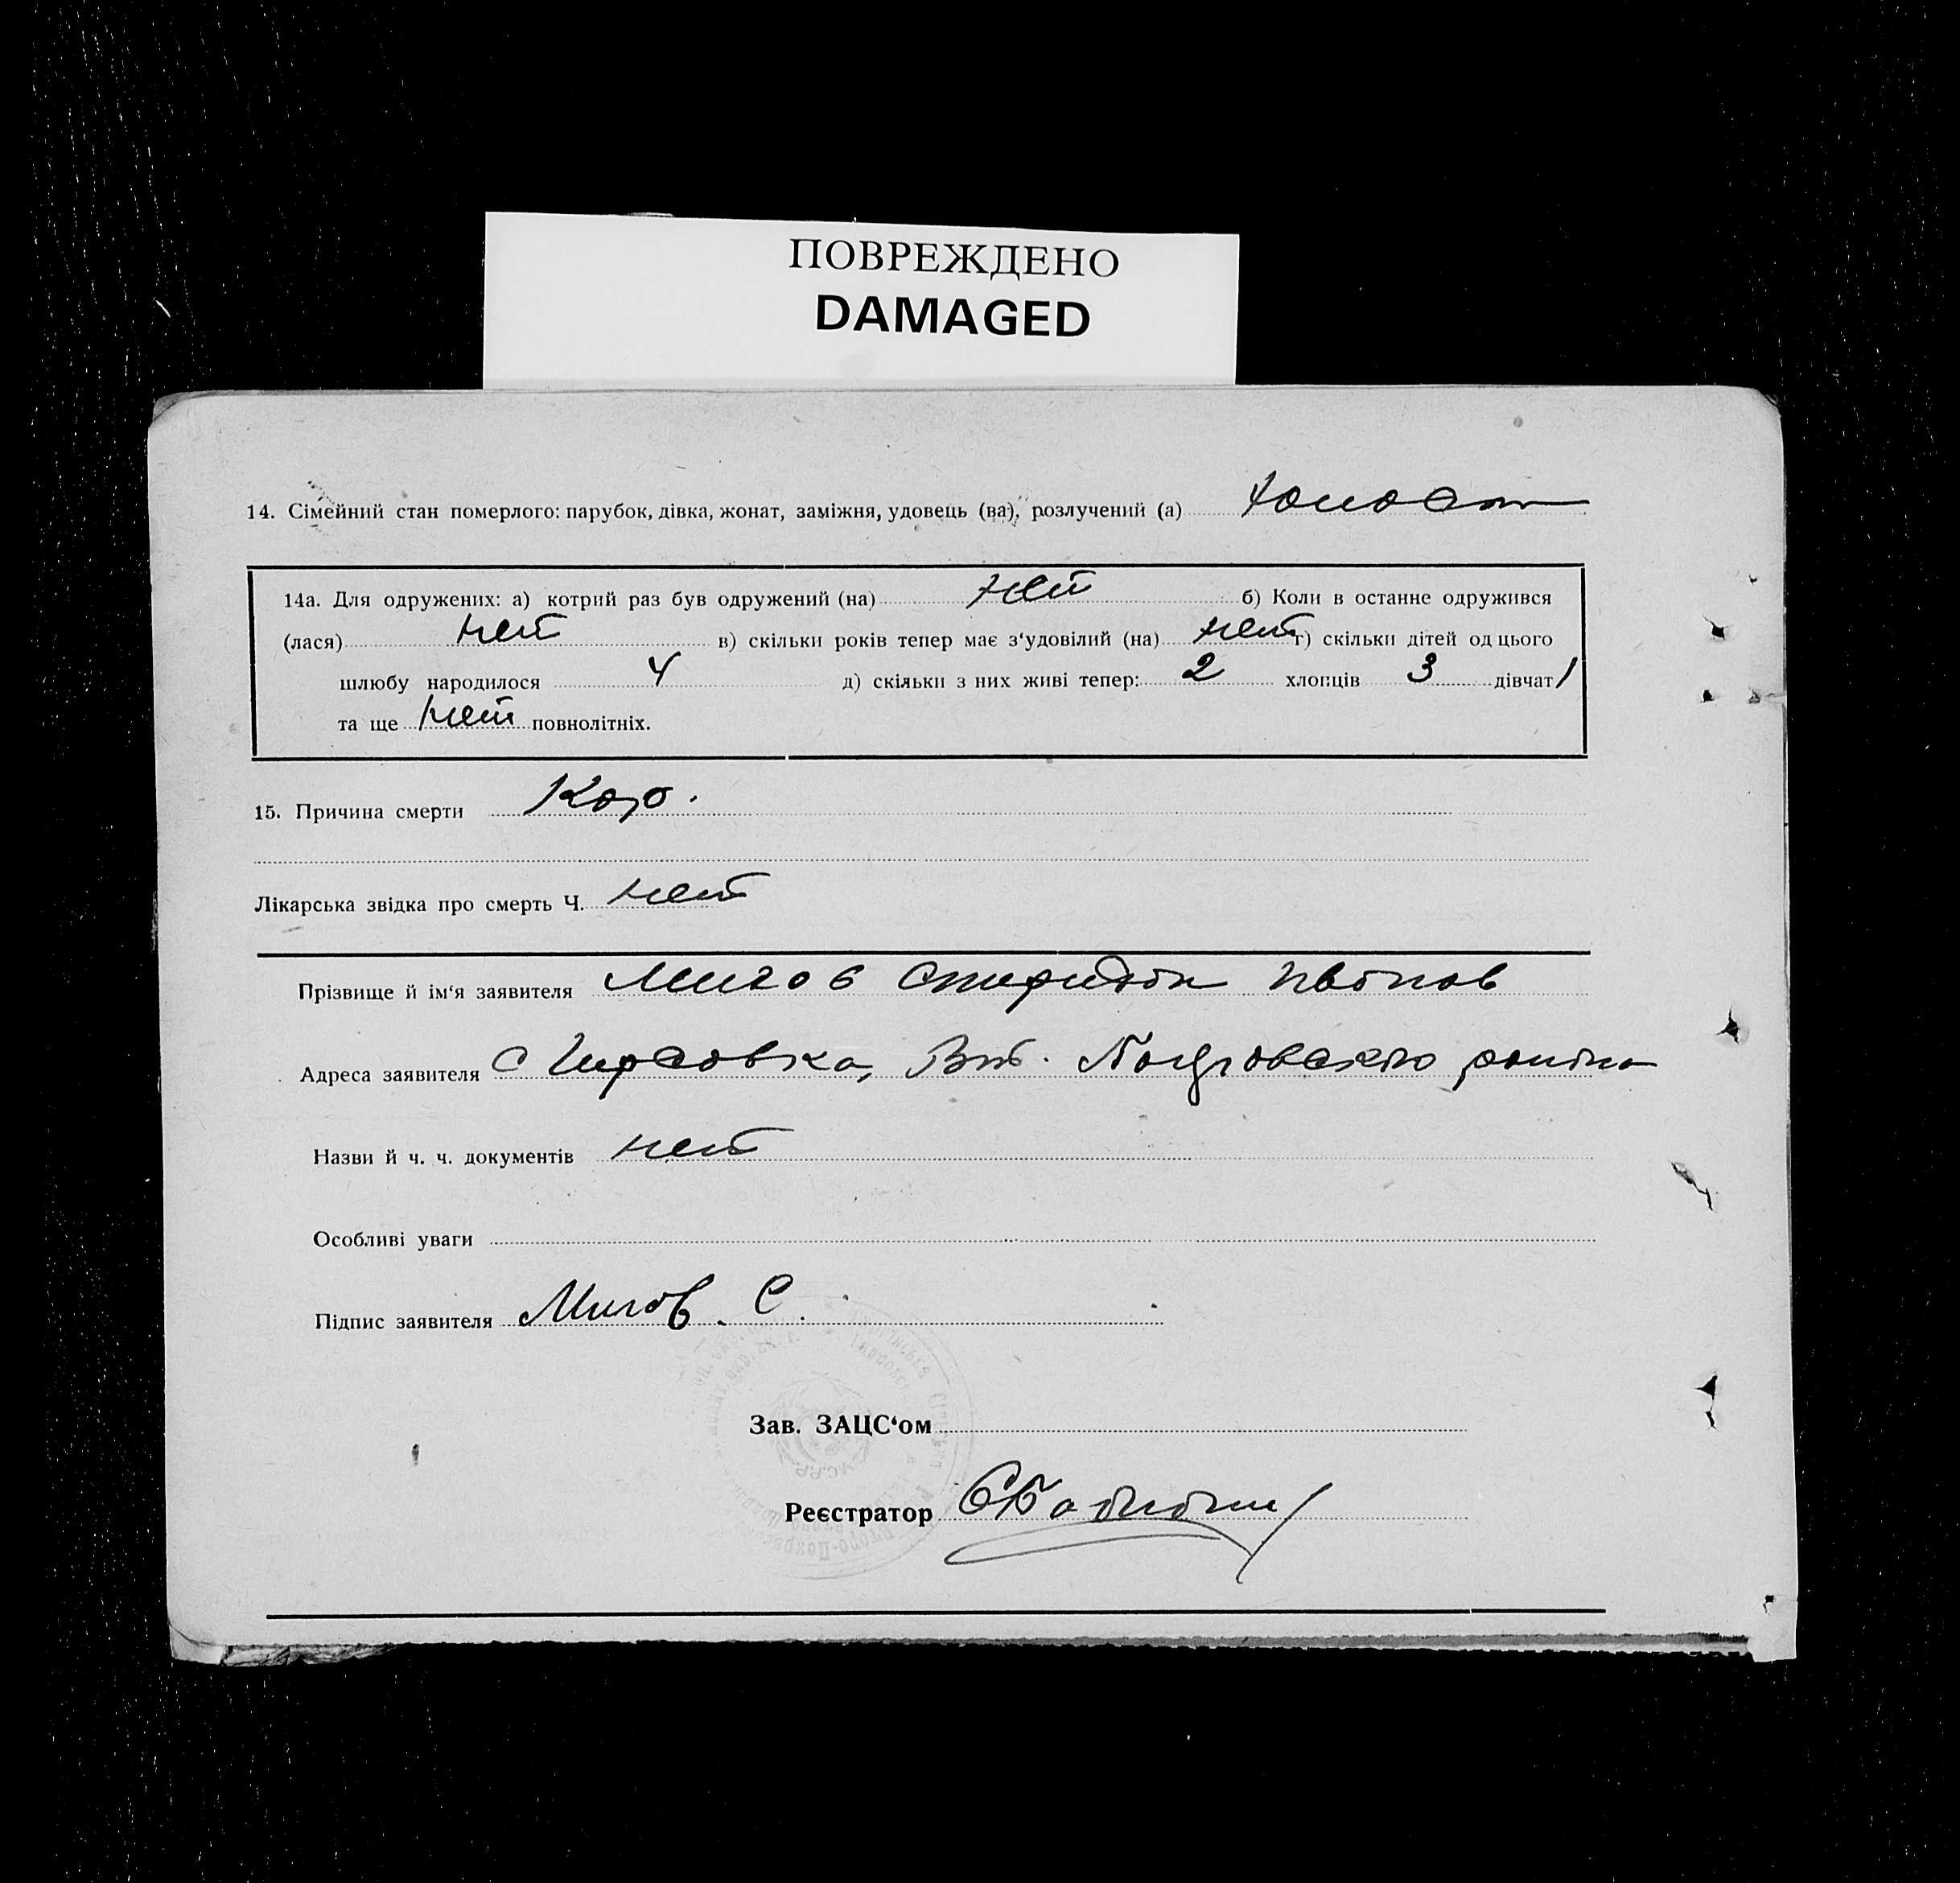 ПОВРЕЖДЕНО
DAMAGED
14. Сімейний стан померлого: парубок, дівка, жонат, заміжня, удовець (ва), розлучений (а) холост
14а. Для одружених: а) котрий раз був одружений (на) нет б) Коли в останне одружився
(лася) нет в) скільки років тепер має з‘удовілий (на) нет г) скільки дітей од цього
шлюбу народилося 4 д) скільки з них живі тепер: 2 хлопців 3 дівчат 1
та ще нет повнолітніх.
15. Причина смерти Кор.
Лікарська звідка про смерть Ч. нет
Прізвище й ім‘я заявителя Мигов Спиридон
Адреса заявителя с Чирсовка, района
Назви й ч. ч. документів нет
Особливі уваги
Підпис заявителя Мигов. С.
Зав. ЗАЦС‘ом
Реєстратор